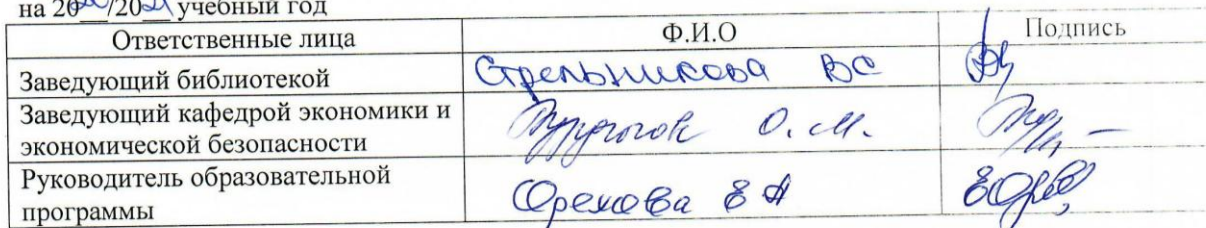 на 2020/2021 учебный год
Ответственные лица Ф.И.О Подпись
Заведующий библиотекой Стрельникова ВС
Заведующий кафедрой экономики и
экономической безопасности О.М.
Руководитель образовательной
программы Орехова ЕА